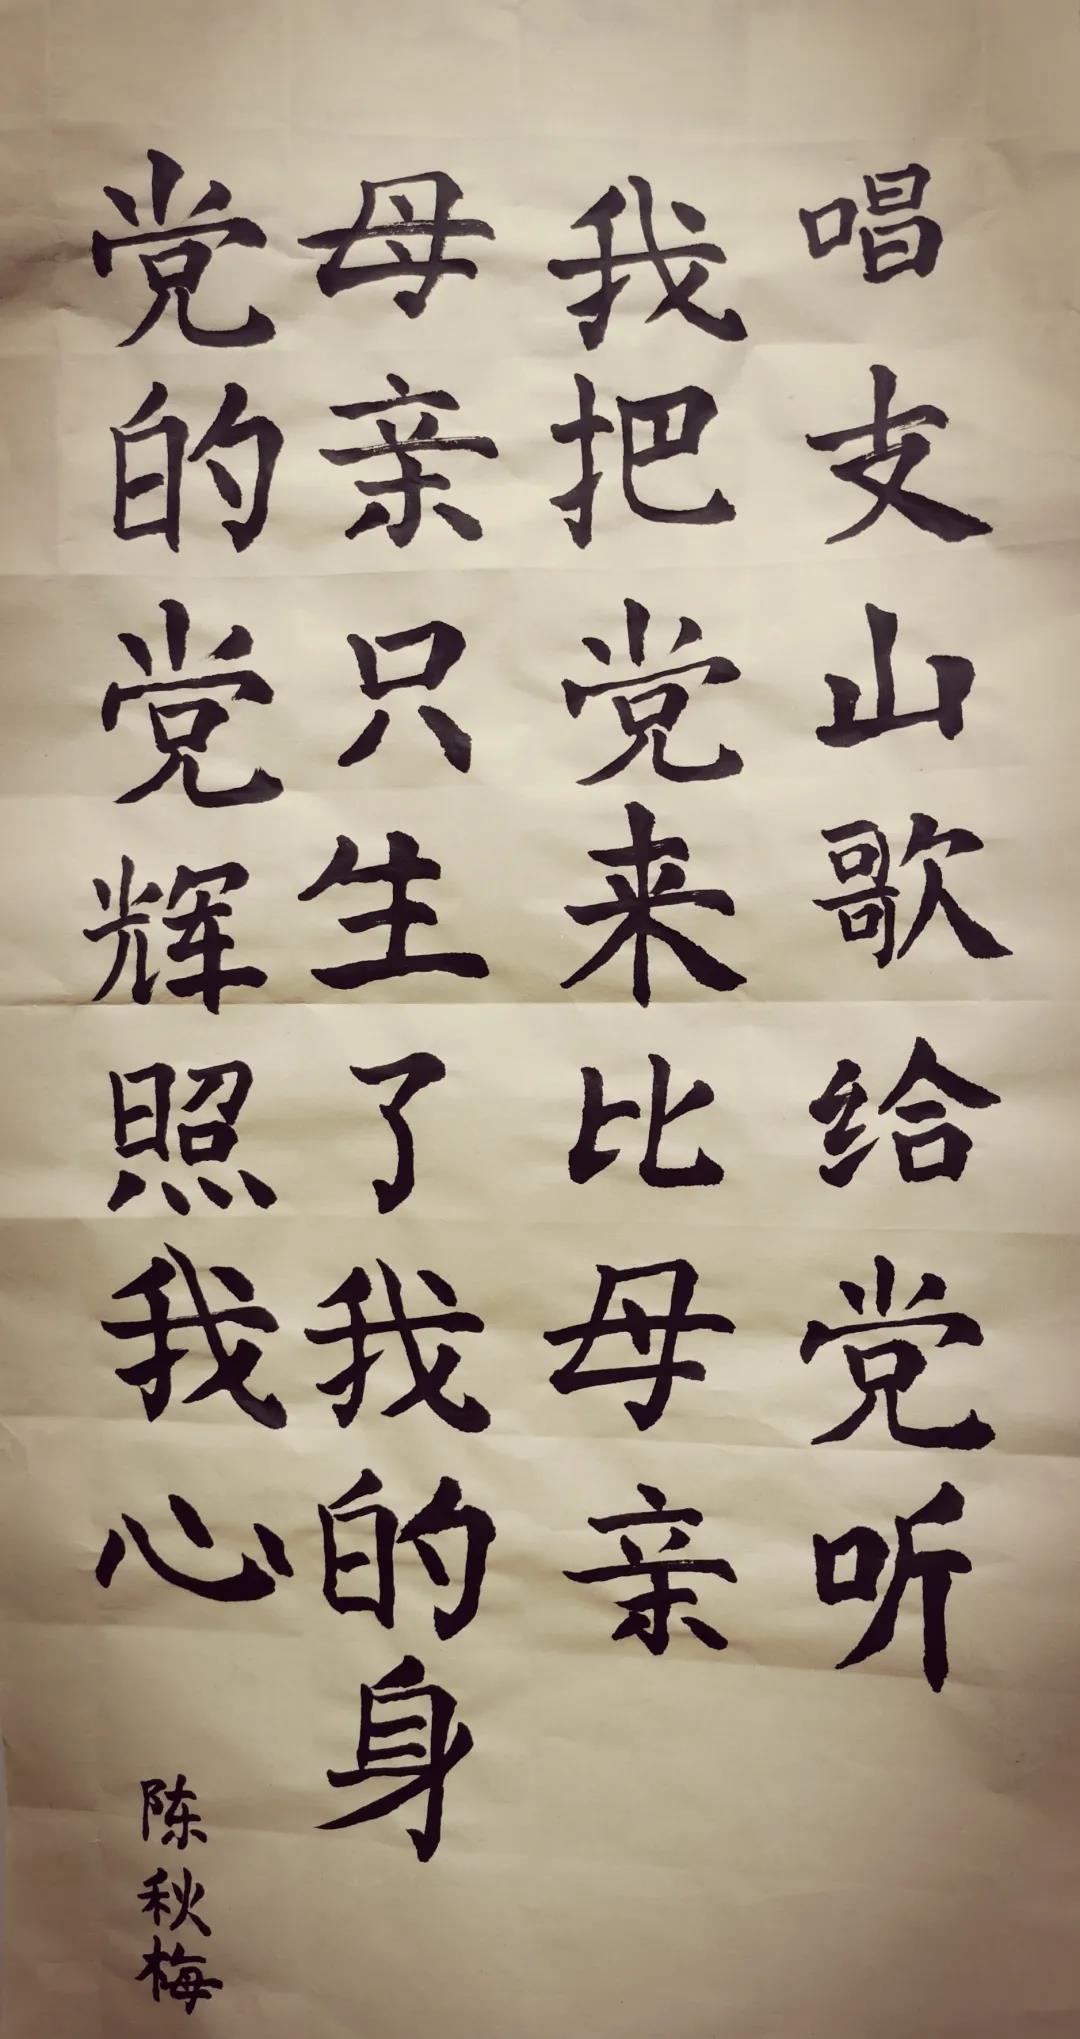 唱支山歌给党听
我把党来比母亲
母亲只生了我的身
党的党辉照我心
陈秋梅